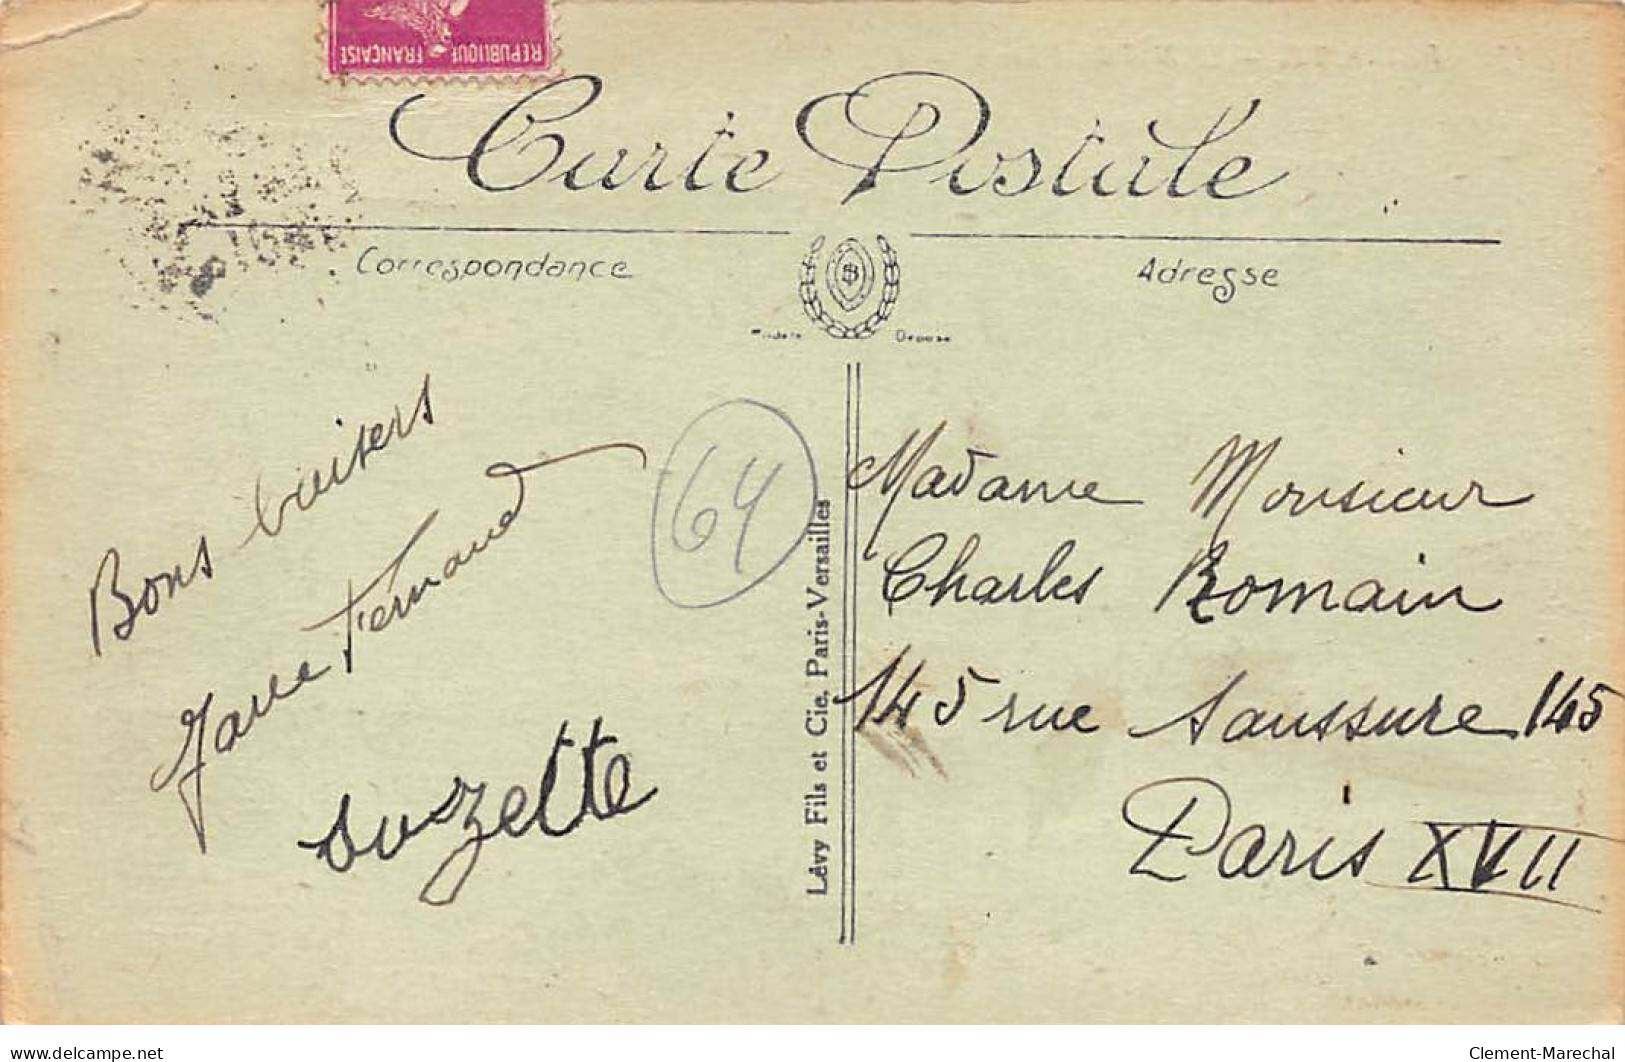 REPUBLIQUE FRANÇAISE
Carte Postale
Correspondance
Adresse
Bons baisers
Fernand
suzette
64
Lévy Fils et Cie. Paris-Versailles
Madame Monsieur
Charles Romain
145 rue Saussure 145
Paris XVII
www.delcampe.net
Clement-Marechal